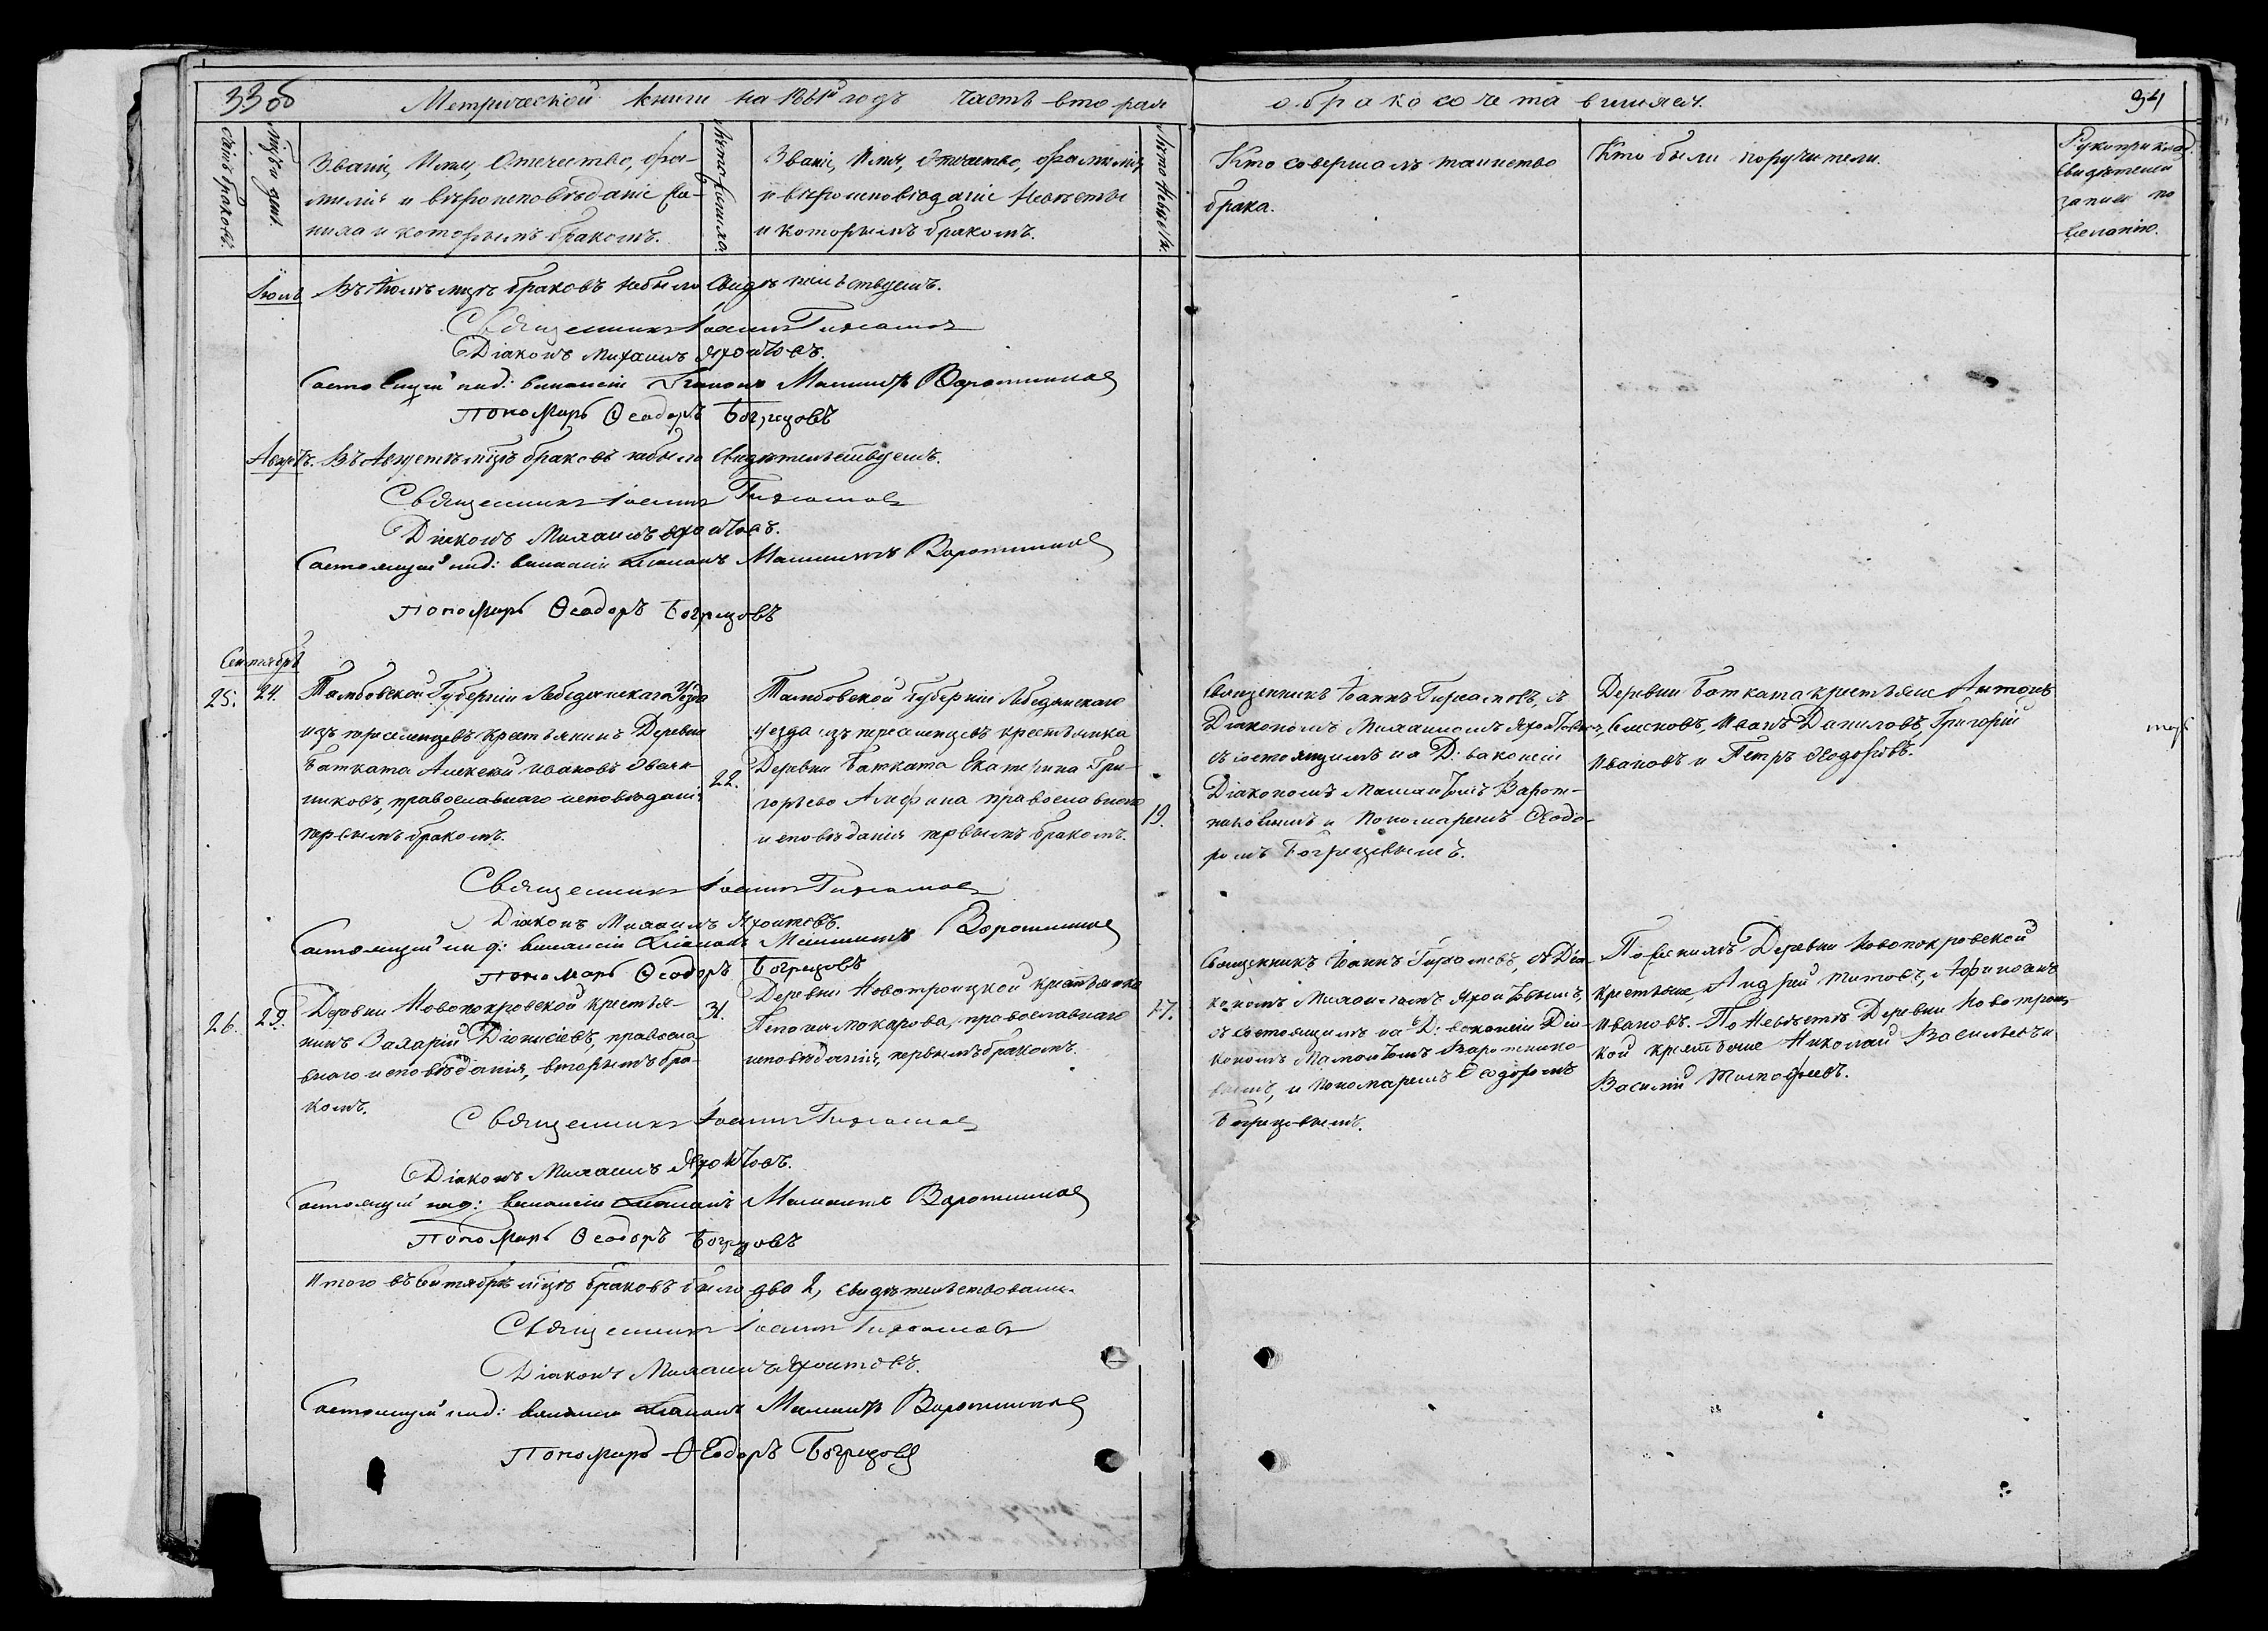 33 об
Метрической книги на 1861й годъ часть вторая
о бракосочетавшихся.
34
Счетъ браковъ.
Мѣсяцъ и день.
Званіе, Имя, Отечество, фа-
милія и вѣроисповѣданіе Же-
ниха и которымъ бракомъ.
Лѣта Жениха.
Званіе, Имя, Отчество, фамилія
и вѣроисповѣданіе Невѣсты
и которымъ бракомъ.
Лѣта Невѣсты.
Кто совершалъ таинство
брака.
Кто были поручители.
Рукоприклад.
свидѣтелей
записи по
желанію.
Іюль Въ Іюлѣ мцѣ браковъ небыло Свидѣтельствуемъ.
Священникъ Іоаннъ
Діаконъ Михаилъ Яхонтовъ.
Состоящій на д: вакансіи Діаконъ Воротниковъ
Пономарь Ѳеодоръ Богрецовъ
Августъ. Въ Августѣ мцѣ браковъ небыло Свидѣтельствуемъ.
Священникъ Іоаннъ
Діаконъ Михаилъ Яхонтовъ.
Состоящій на д: вакансіи Діаконъ Воротниковъ
Пономарь Ѳеодоръ Богрецовъ
Сентябрь
25. 24. Тамбовской Губерніи Лебедянскаго Уѣзда
изъ переселенцевъ крестьянинъ Деревни
Батката Алексѣй Ивановъ Овчин-
никовъ, православнаго исповѣданія
первымъ бракомъ.
22.
Тамбовской Губерніи Лебедянскаго
уезда изъ переселенцевъ крестьянка
Деревни Батката Екатерина Гри-
горьева православнаго
исповѣданія первымъ бракомъ.
19.
Священникъ Іоаннъ съ
Діакономъ Михаиломъ Яхонтовымъ,
съ состоящимъ на Д: вакансіи
Діакономъ Ворот-
никовымъ и Пономаремъ Ѳеодо-
ромъ Богрецовымъ.
Деревни Батката крестьяне Антонъ
Иванъ Даниловъ, Григорій
Ивановъ и Петръ
Священникъ Іоаннъ
Діаконъ Михаилъ Яхонтовъ.
Состоящій на д: вакансіи Діаконъ Воротниковъ
Пономарь Ѳеодоръ Богрецовъ
26. 29. Деревни Новопокровской крестья-
нинъ Захарій Діонисіевъ, правосла-
внаго исповѣданія, вторымъ бра-
комъ.
31.
Деревни Новотроицкой крестьянка
Макарова, православнаго
исповѣданія, первымъ бракомъ.
17.
Священникъ Іоаннъ съ Діа-
кономъ Михаиломъ Яхонтовымъ,
съ состоящимъ на Д: вакансіи Діа-
кономъ Воротнико-
вымъ, и Пономаремъ Ѳеодоромъ
Богрецовымъ.
По Женихѣ Деревни Новопокровской
крестьяне, Андрей Титовъ,
Ивановъ. По Невѣстѣ Деревни Новотроиц-
кой крестьяне Николай Васильевъ и
Василій Тимофеевъ.
Священникъ Іоаннъ
Діаконъ Михаилъ Яхонтовъ.
Состоящій на д: вакансіи Діаконъ Воротниковъ
Пономарь Ѳеодоръ Богрецовъ
Итого въ Сентябрѣ мцѣ браковъ было два 2, свидѣтельствовали.
Священникъ Іоаннъ
Діаконъ Михаилъ Яхонтовъ.
Состоящій на д: вакансіи Діаконъ Воротниковъ
Пономарь Ѳеодоръ Богрецовъ